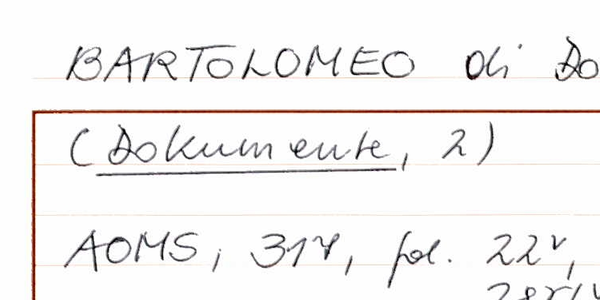 BARTOLOMEO di Do
(Dokumente, 2)
AOMS, 317, fol. 22v,